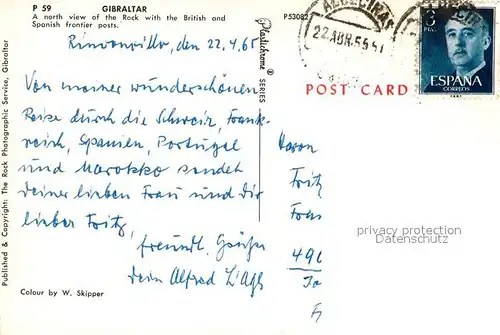 P 59 GIBRALTAR
A north view of the Rock with the British and
Spanish frontier posts.
P53082
den 22.4.65
Von meiner wunderschönen
Reise durch die Schweiz, Frank-
reich, Spanien, Portugal
und Marokko sendet
deiner lieben Frau und dir
lieber Fritz,
freundl. Grüße
dein Alfred
Colour by W. Skipper
Published & Copyright: The Rock Photographic Service, Gibraltar
Plastichrome ® SERIES
POST CARD
3
PTAS
ESPAÑA
CORREOS
Herrn
Fritz
privacy protection
Datenschutz